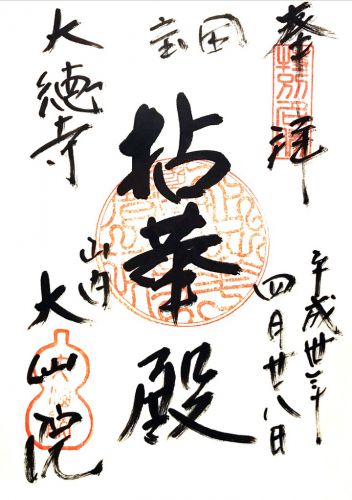 奉拝
平成卅年
四月廿八日
国宝
拈華殿
大徳寺
山内
大仙院